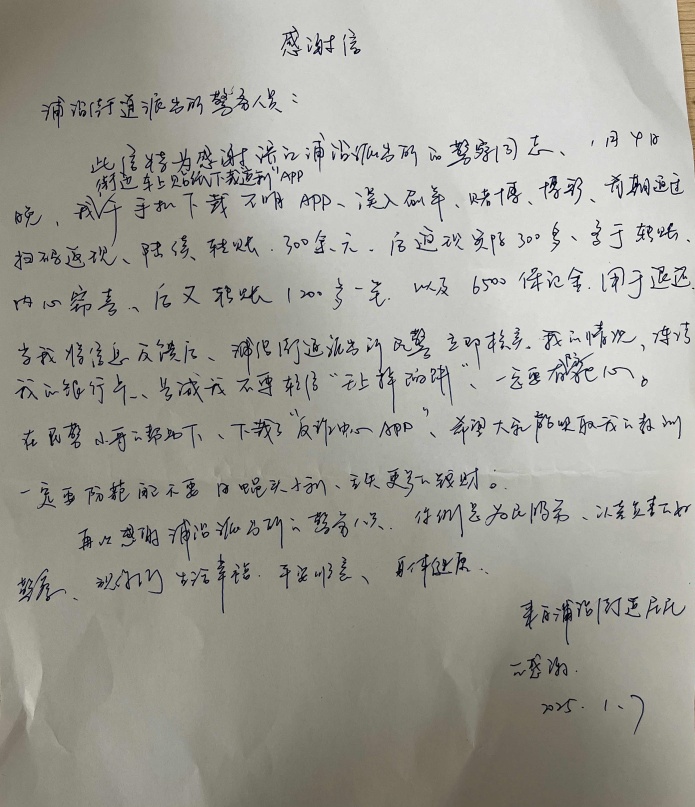 感谢信
浦沿街道派出所警务人员：
此信特为感谢滨江浦沿派出所的警察同志、1月4日
街边车上贴纸下载返利"APP
晚、我于手机下载不明APP、误入刷单、赌博、博彩、前期通过
扫码返现、陆续转账.300余元.后返现实际300多、等于转账、
内心窃喜、后又转账1200多一笔.以及6500保证金.用于返还.
当我将信息反馈后、浦沿街道派出所民警立即核实.我的情况、冻结
我的银行卡、告诫我不要轻信"天上掉馅饼"、一定要有防范心。
在民警小哥的帮助下、下载了"反诈中心APP"、希望大家能吸取我的教训
一定要防范不要因蝇头小利、丢失更多的钱财。
再次感谢浦沿派出所的警务人员.你们是为民服务、认真负责的好
警察、祝你们生活幸福.平安顺意、身体健康.
来自浦沿街道居民
的感谢.
2025.1.7